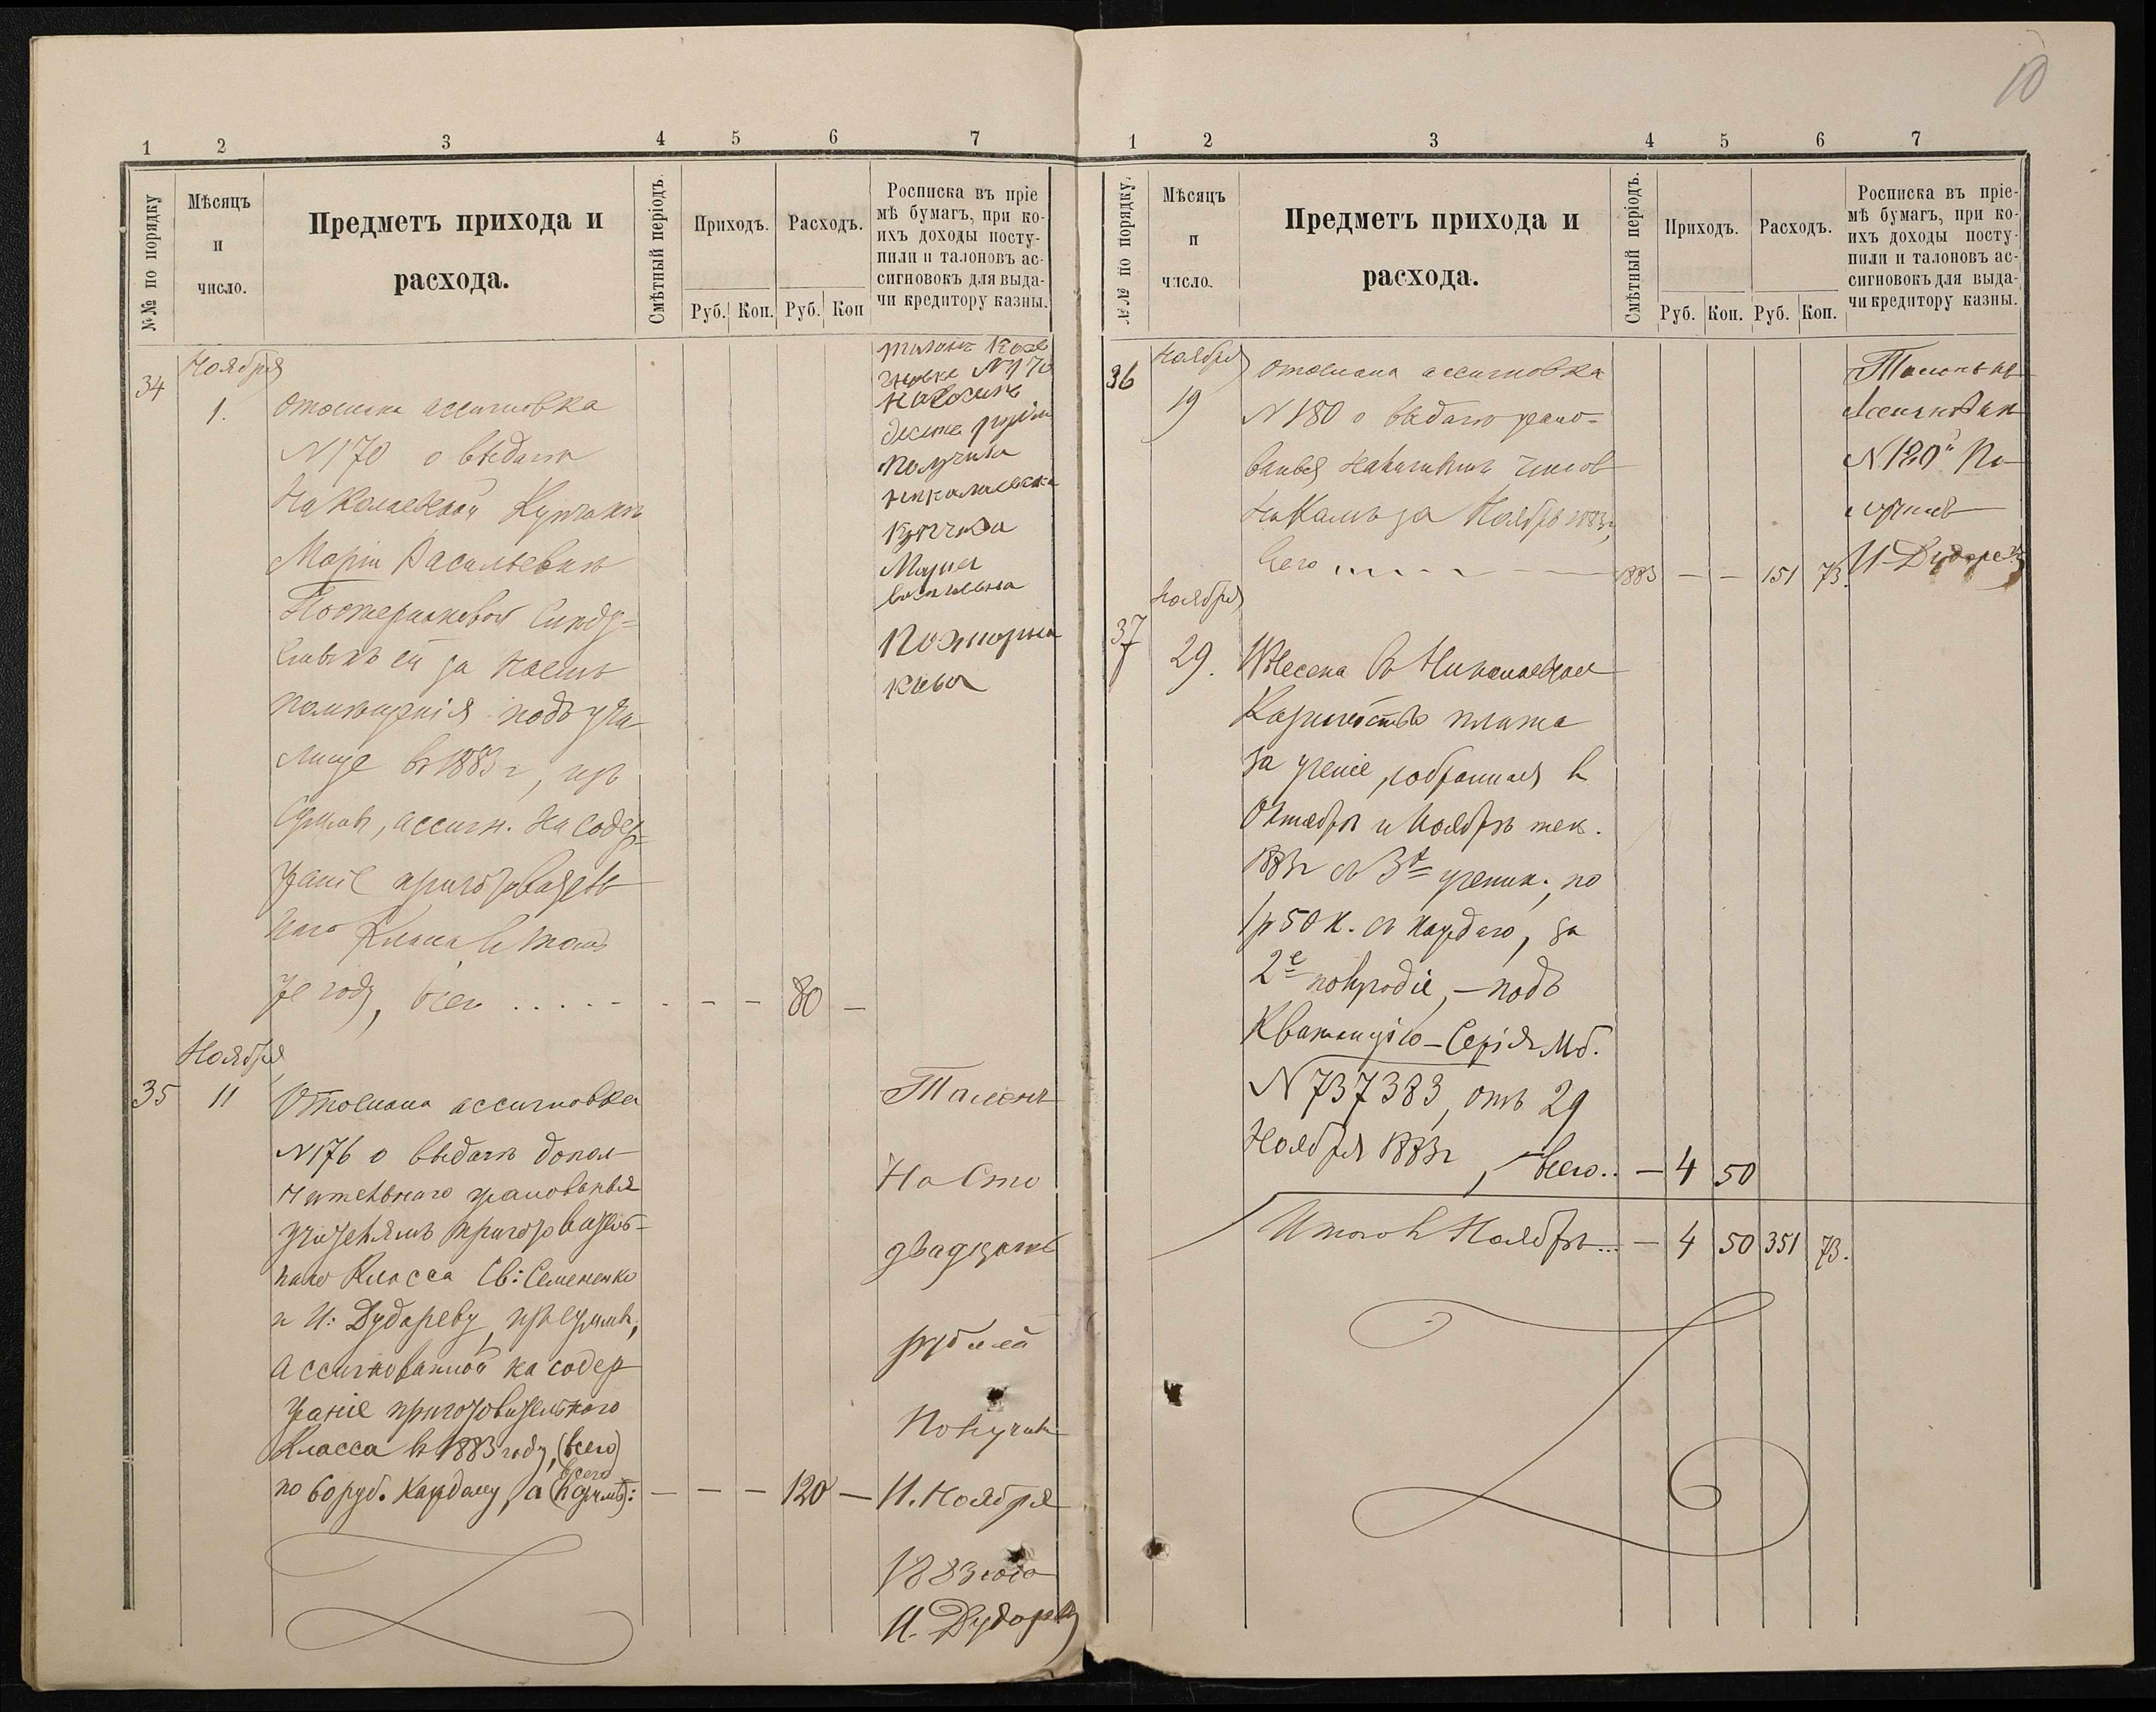 10
1 2 3 4 5 6 7
№№ по порядку
Мѣсяцъ
и
число.
Предметъ прихода и
расхода.
Смѣтный періодъ.
Приходъ.
Руб. Коп.
Расходъ.
Руб. Коп
Росписка въ пріе
мѣ бумагъ, при ко-
ихъ доходы посту-
пили и талоновъ ас-
сигновокъ для выда-
чи кредитору казны.
34
Ноября
1.
Отослана ассигновка
N170 о выдачѣ
Николаевской Купчихѣ
Маріи Васильевнѣ
Сльду=
емыхъ ей за наемъ
помѣщенія подъ учи
лище въ 1883 г, изъ
суммы, ассигн. на содер=
жаніе приготовитель
наго Класса, въ томъ
же году, всего . . . . - - - - 80 —
Талонъ
N170
на восемь
десять рублей
Получила
николаевская
Купчиха
Марья
васильевна
35
Ноября
11
Отослана ассигновка
N176 о выдачѣ допол-
нительнаго жалованья
учителямъ приготовитель-
наго Класса Св: Семененко
и И: Дудареву, изъ суммы,
Ассигнованной на содер
жаніе приготовительнаго
Класса въ 1883 году, (всего)
по 60 руб. Каждому, а всего — — — 120 —
Талонъ
На Сто
двадцать
рублей
Получилъ
11. Ноября
1883 года
И. Дударевъ
1 2 3 4 5 6 7
№№ по порядку.
Мѣсяцъ
и
число.
Предметъ прихода и
расхода.
Смѣтный періодъ.
Приходъ.
Руб. Коп.
Расходъ.
Руб. Коп.
Росписка въ пріе-
мѣ бумагъ, при ко-
ихъ доходы посту-
пили и талоновъ ас-
сигновокъ для выда-
чи кредитору казны.
36
Ноября
19
Отослана ассигновка
N 180 о выдачѣ жало-
ванья
за Ноябрь 1883 г,
Всего . . . . 1883 — — 151 73.
Талонъ
Ассигновки
N. 180й По
лучилъ
И Дударевъ
37
Ноября
29.
Внесена въ Николаевское
Казначейство плата
за ученіе, собранная въ
Октябрѣ и Ноябрѣ тек.
1883 г съ 3х ученик., по
1 р 50 к. съ каждаго, за
2е полугодіе, — подъ
Квитанцію — Серія Мб.
N 737383, отъ 29
Ноября 1883 г, всего.. — 4 50
Итого въ Ноябрѣ... — 4 50 351 73.